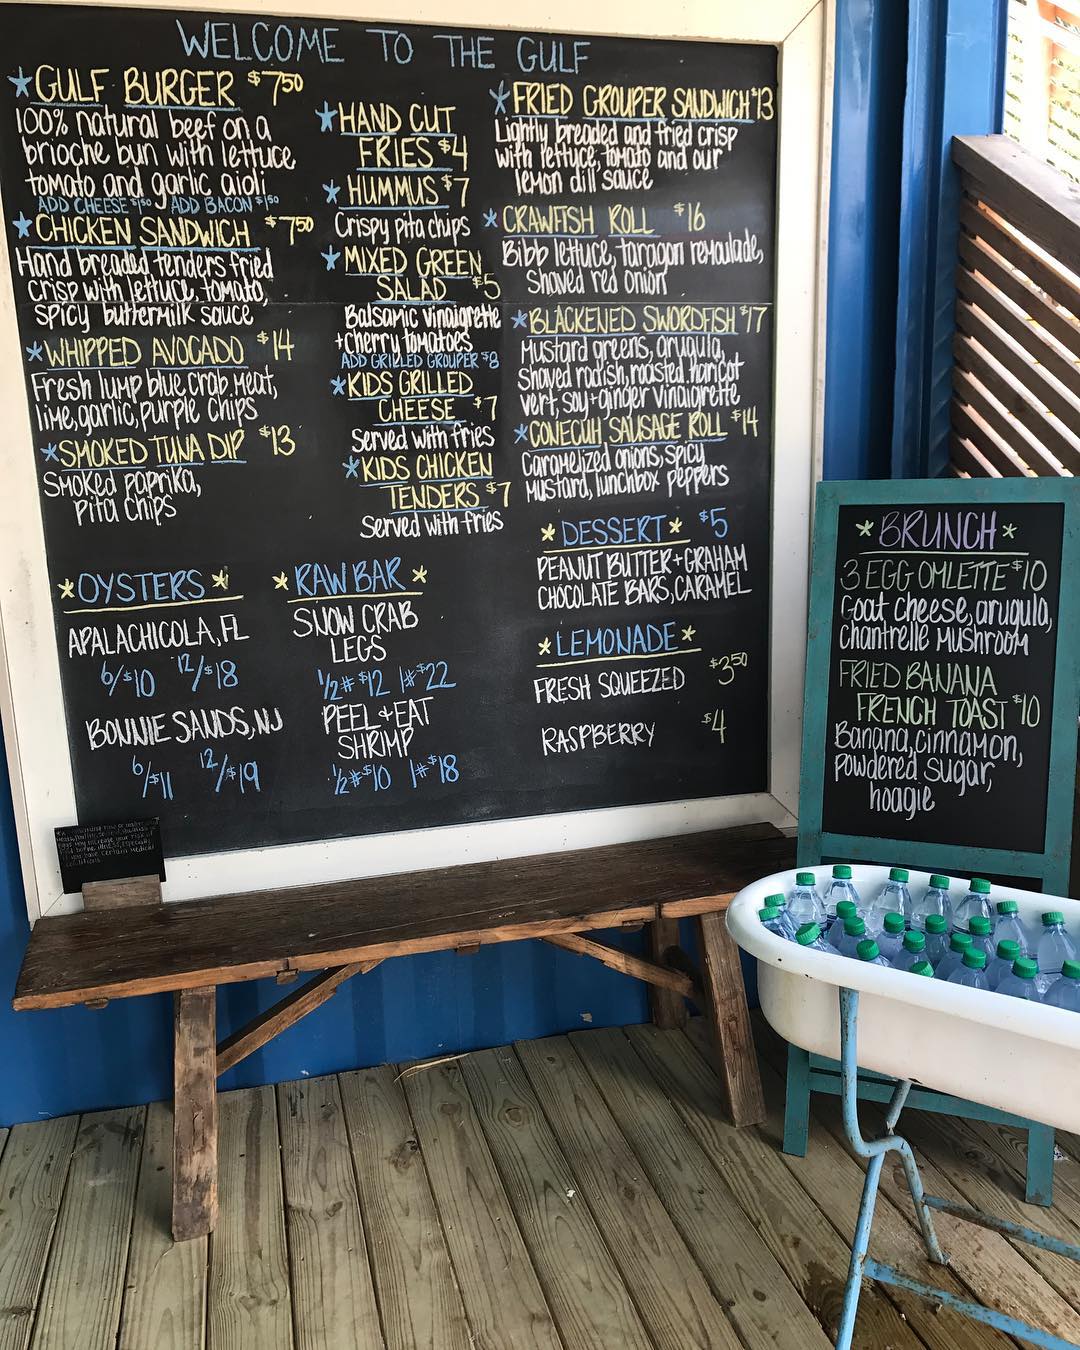 WELCOME TO THE GULF
*GULF BURGER $750
100% natural beef on a
brioche bun with lettuce
tomato and garlic aioli
ADD CHEESE $1.50 ADD BACON $1.50
*CHICKEN SANDWICH $750
Hand breaded tenders fried
crisp with lettuce, tomato,
spicy buttermilk sauce
*WHIPPED AVOCADO $14
Fresh lump blue crab meat,
lime, garlic, purple chips
*SMOKED TUNA DIP $13
Smoked paprika,
Pita chips
*HAND CUT
FRIES $4
*HUMMUS $7
Crispy pita chips
*MIXED GREEN
SALAD $5
Balsamic vinaigrette
+cherry tomatoes
ADD GRILLED GROUPER $8
*KIDS GRILLED
CHEESE $7
Served with fries
*KIDS CHICKEN
TENDERS $7
Served with fries
*FRIED GROUPER SANDWICH $13
Lightly breaded and fried crisp
with lettuce, tomato and our
lemon dill sauce
*CRAWFISH ROLL $16
Bibb lettuce, taragon remoulade,
Shaved red onion
*BLACKENED SWORDFISH $17
Mustard greens, arugula,
Shaved radish, roasted haricot
vert, soy+ginger vinaigrette
*CONECUH SAUSAGE ROLL $14
Caramelized onions, spicy
mustard, lunchbox peppers
*DESSERT* $5
PEANUT BUTTER+GRAHAM
CHOCOLATE BARS, CARAMEL
*LEMONADE*
FRESH SQUEEZED $350
RASPBERRY $4
*OYSTERS*
APALACHICOLA, FL
6/$10 12/$18
BONNIE SANDS, NJ
6/$11 12/$19
*RAW BAR*
SNOW CRAB
LEGS
1/2# $12 1# $22
PEEL + EAT
SHRIMP
1/2# $10 1# $18
*BRUNCH*
3 EGG OMLETTE $10
Goat cheese, arugula,
chantrelle mushroom
FRIED BANANA
FRENCH TOAST $10
Banana, cinnamon,
powdered sugar,
hoagie